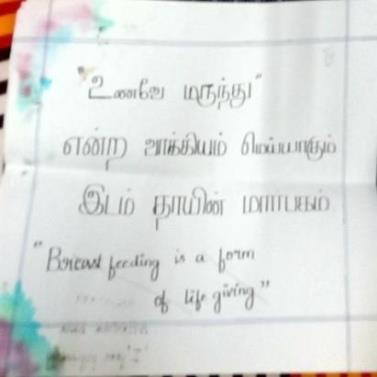 "உணவே மருந்து"
என்ற வாக்கியம் மெய்யாகும்
இடம் தாயின் மார்பகம்
"Breast feeding is a form
of life giving"